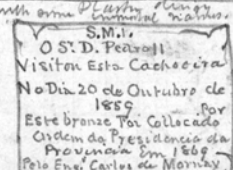 S.M.I.
O Sr. D. Pedro II
Visitou Esta Cachoeira
No Dia 20 de Outubro de
1859
Por
Este bronze Foi Collocado
Ordem da Presidencia da
Provincia Em 1869
Pelo Eng. Carlos de Mornay